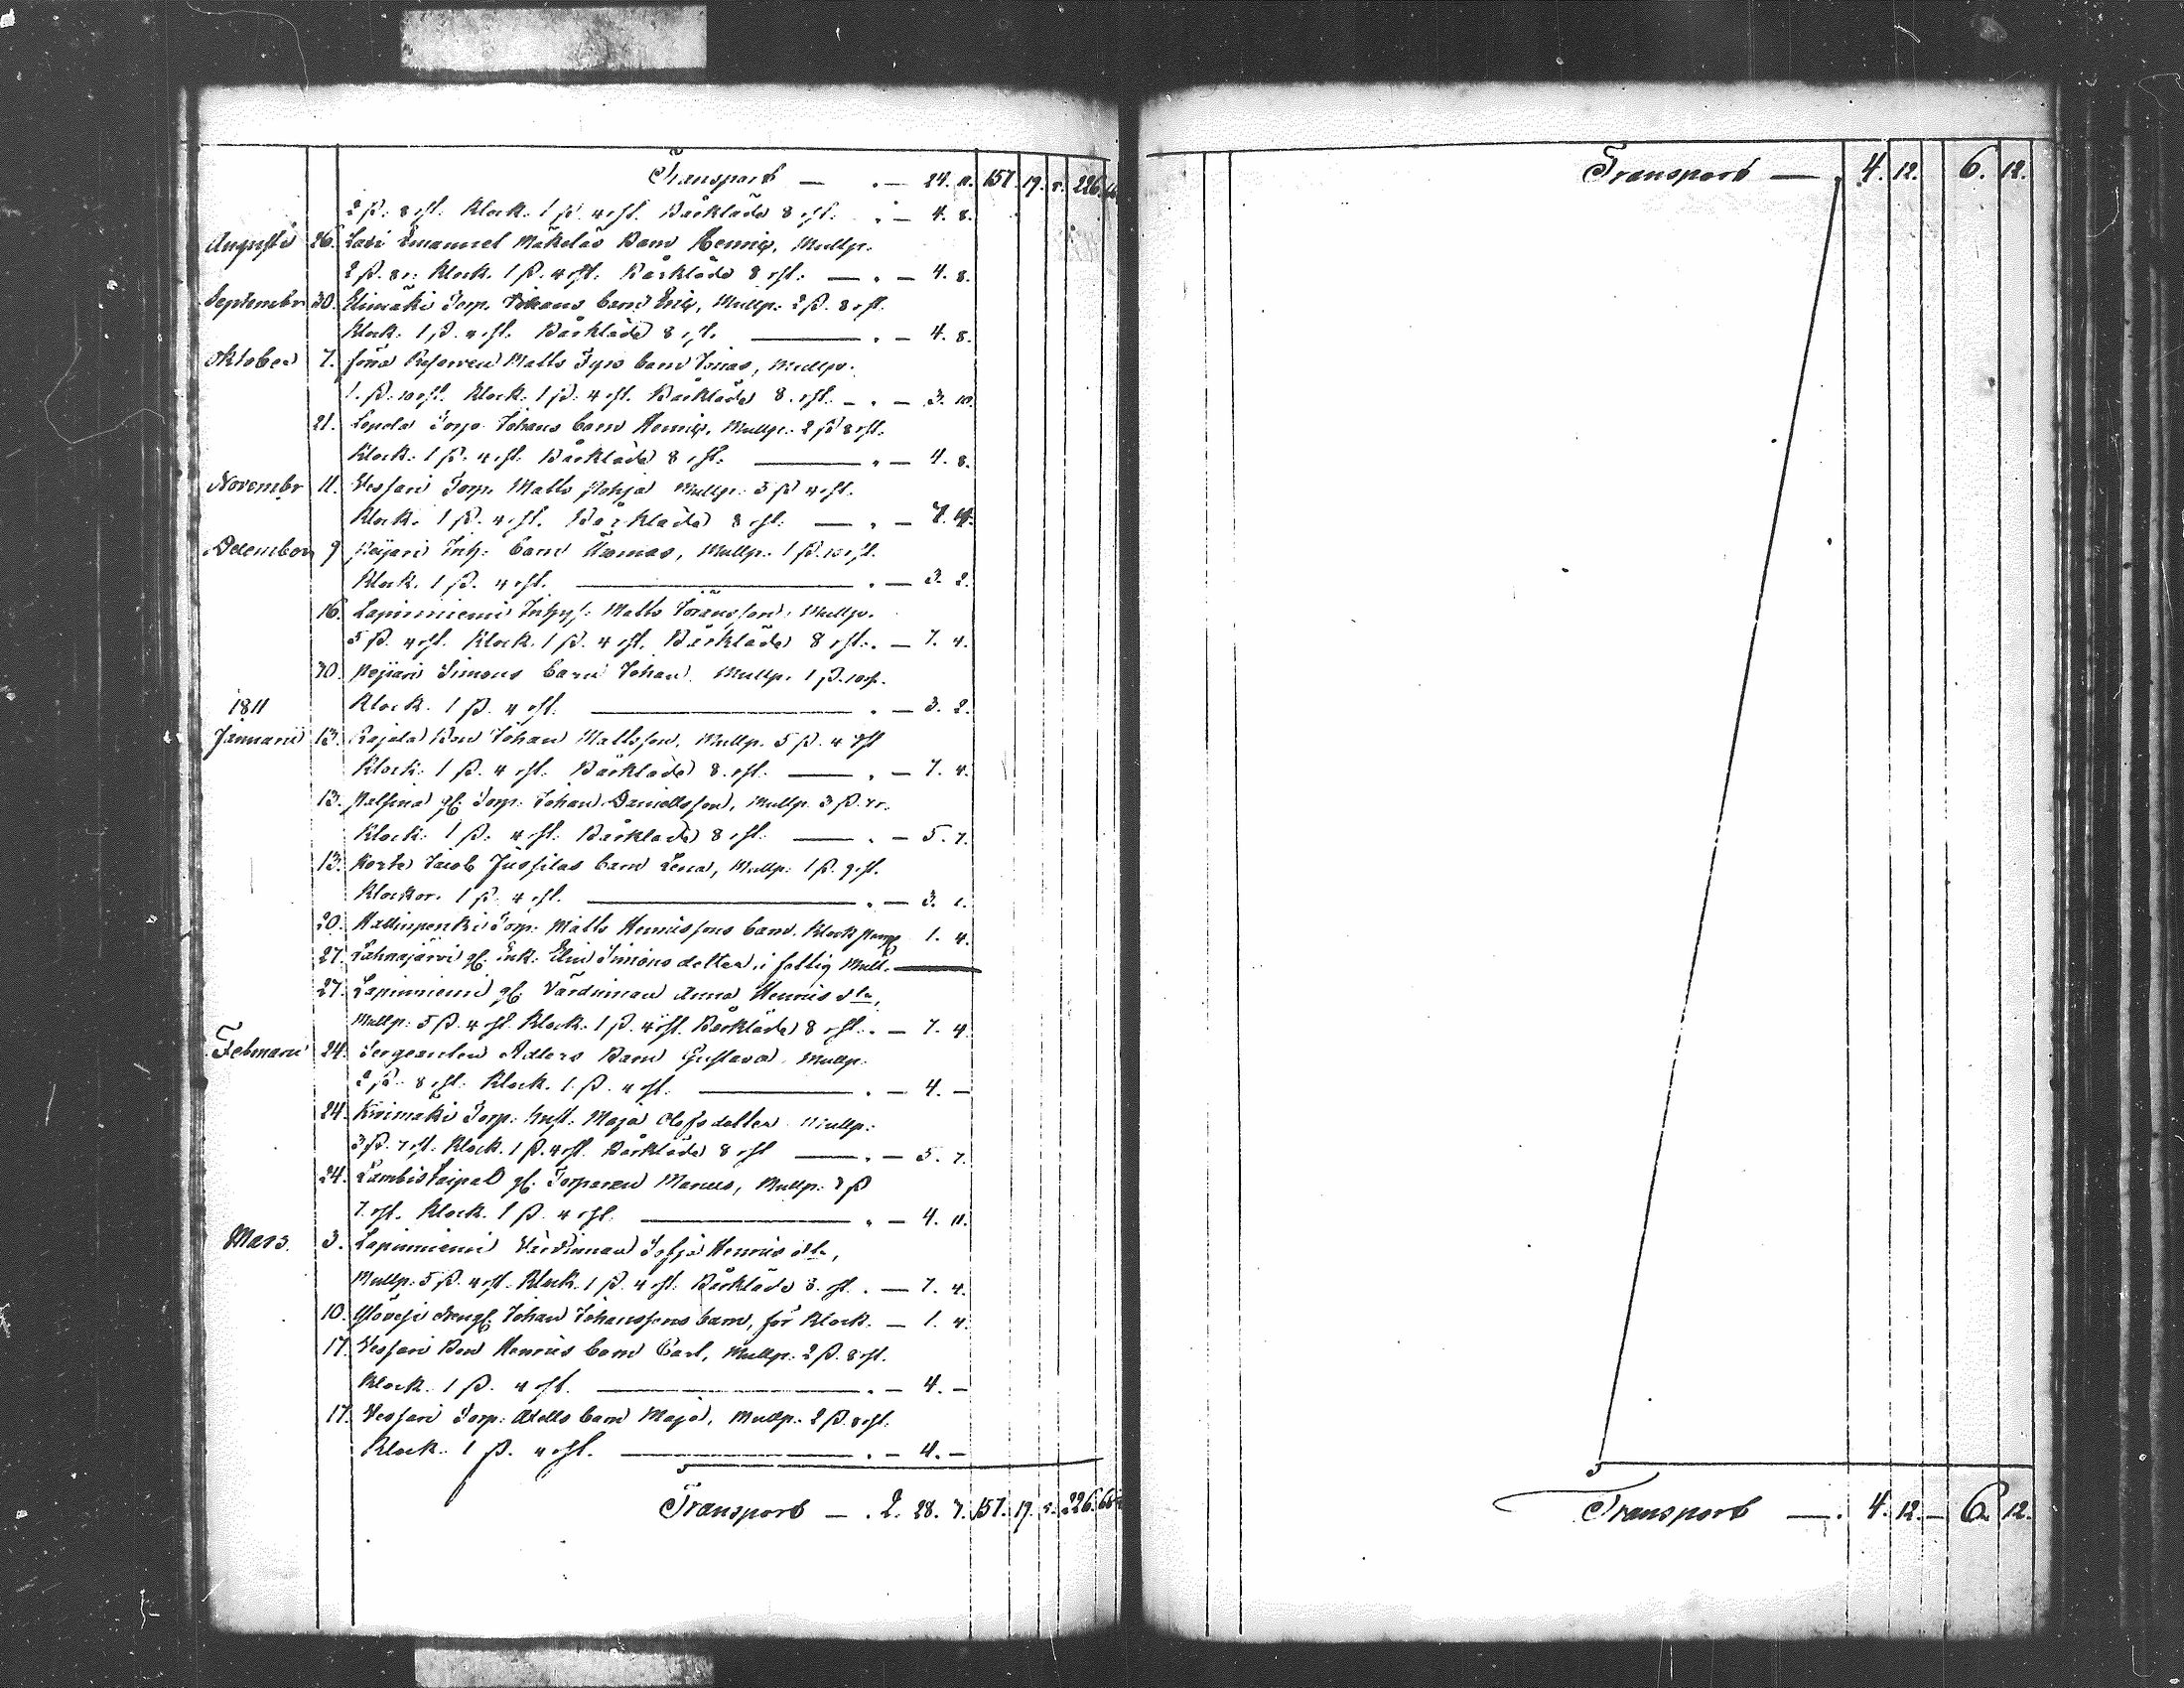 Transport — . — 24. 11. 157. 19. 5. 226.
2 ß. 8 rst. Klock. 1 ß. 4 rst. Bårkläde 8 rst. . — 4. 8.
Augusti 26. Lasi Emanuel Mäkeläs Barn Henric, Mullp.
2 ß. 8 r. Klock. 1 ß. 4 rst. Bårkläde 8 rst. — . — 4. 8.
Septembr 30. Torp. Johans barn Eric, Mullp. 2 ß. 8 rst.
Klock. 1 ß. 4 rst. Bårkläde 8 rst. — . — 4. 8.
Oktober 7. Matts barn Jonas, Mullp.
1 ß. 10 rst. Klock. 1 ß. 4 rst. Bårkläde 8 rst. — . — 3. 10.
21. Lepola Torp. Johans barn Henric, Mullp. 2 ß 8 rst.
Klock. 1 ß. 4 rst. Bårkläde 8 rst. — . — 4. 8.
Novembr 11. Vessari Torp. Matts Pohja Mullp. 5 ß 4 rst.
Klock. 1 ß. 4 rst. Bårkläde 8 rst. — . — 7. 4.
December 9 Peijari Inh. barn Thomas, Mullp. 1 ß. 10 rst.
Klock. 1 ß. 4 rst. — . — 3. 2.
16. Lapinniemi Matts Mullp.
5 ß. 4 rst. Klock. 1 ß. 4 rst. Bårkläde 8 rst. . — 7. 4.
30. Peijari Simons barn Johan. Mullp. 1 ß. 10 r.
1811 Klock. 1 ß. 4 rst. — . — 3. 2.
Januarii 13. Rajala Bon Johan Mattsson, Mullp. 5 ß. 4 rst
Klock. 1 ß. 4 rst. Bårkläde 8 rst. — . — 7. 4.
13. gl. Torp. Johan Danielsson, Mullp. 3 ß. 7 r.
Klock. 1 ß. 4 rst. Bårkläde 8 rst. — . — 5. 7.
13. Korte Jacob Jussilas barn Lena, Mullp. 1 ß. 9 rst.
Klockor. 1 ß. 4 rst. — . — 3. 1.
20. Torp. Matts Henrissons barn. Klock 1. 4.
27. Lahnajärvi gl. Enk. Elin Simons dotter, i fattig Mull. —
27. Lapinniemi gl. Värdinnan Anna Henris dtr,
Mullp. 5 ß. 4 rst. Klock. 1 ß. 4 rst. Bårkläde 8 rst. . — 7. 4.
Februarii 24. Sergeanten Adlers Barn Gustava Mullp.
2 ß. 8 rst. Klock. 1 ß. 4 rst. — . — 4. —
24. Torp. hust. Maja Olofsdotter Mullp.
3 ß. 7 rst. Klock. 1 ß. 4 rst. Bårkläde 8 rst — . — 5. 7.
24. gl. Torparen Marcus, Mullp. 3 ß
7 rst. Klock. 1 ß. 4 rst. — . — 4. 11.
Mars. 3. Lapinniemi Värdinnan Sofja Henris dtr,
Mullp. 5 ß. 4 rst. Klock. 1 ß. 4 rst. Bårkläde 8 rst. . — 7. 4.
10. Johan Johanssons barn, för Klock. — 1. 4.
17. Vessari Bon Henris barn Carl, Mullp. 2 ß. 8 rst.
Klock. 1 ß. 4 rst. — . — 4. —
17. Vessari Torp. barn Maja, Mullp. 2 ß. 8 rst.
Klock. 1 ß. 4 rst. — . — 4. —
Transport — . 2. 28. 7. 157. 19. 5. 226.
Transport — . 4. 12. 6. 12.
Transport — . 4. 12. — 6. 12.